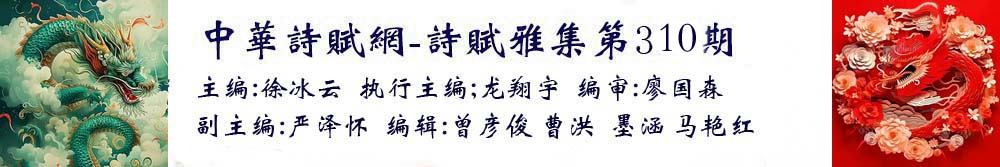 中華詩賦網-詩賦雅集第310期
主编:徐冰云 执行主编;龙翔宇 编审:廖国森
副主编:严泽怀 编辑:曾彦俊 曹洪 墨涵 马艳红